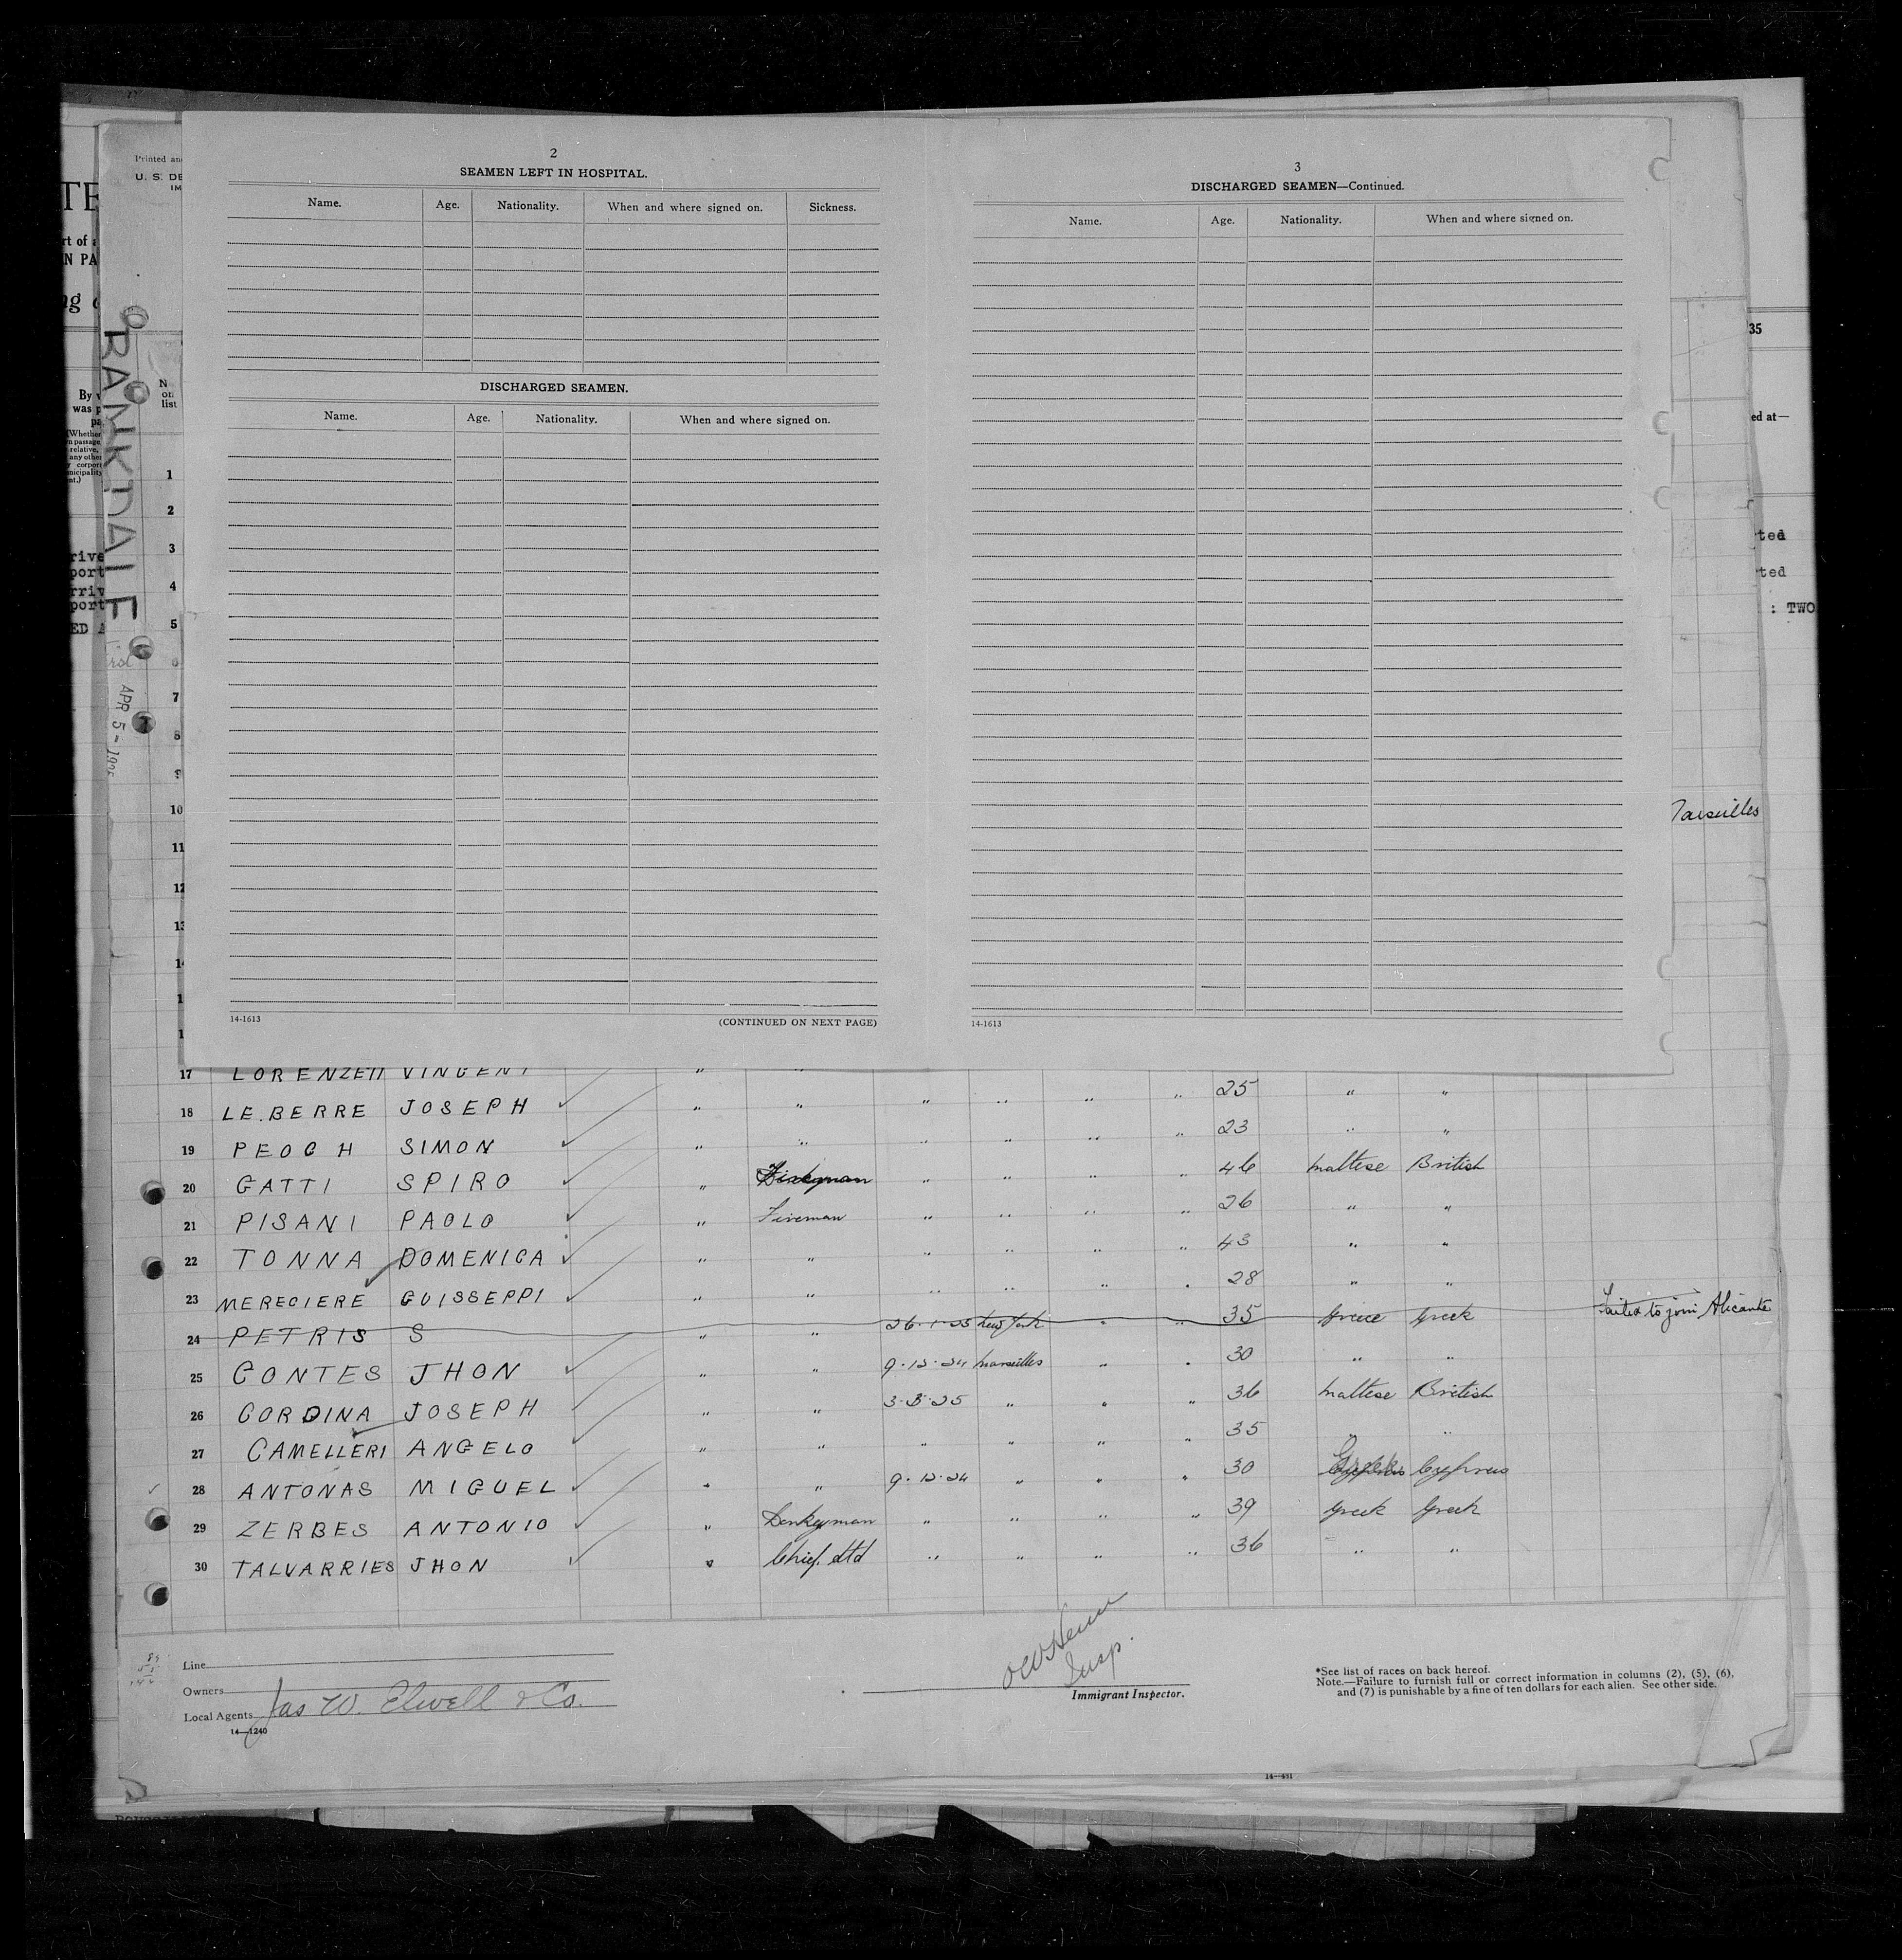 2
SEAMEN LEFT IN HOSPITAL.
Name. Age. Nationality. When and where signed on. Sickness.
DISCHARGED SEAMEN.
Name. Age. Nationality. When and where signed on.
14-1613 (CONTINUED ON NEXT PAGE)
3
DISCHARGED SEAMEN—Continued.
Name. Age. Nationality. When and where signed on.
14-1613
Printed
U. S. DE
IM
BANKDALE
APR 5-1925
35
ed at—
ted
ted
: TWO
N
on
list
1
2
3
4
5
6
7
8
9
10
11
12
13
17 LORENZETTI VINCENT " "
18 LE.BERRE JOSEPH ✓ " " " " " " 25 " "
19 PEOCH SIMON ✓ " " " " " " 23 " "
20 GATTI SPIRO ✓ " " " " " 46 Maltese British
21 PISANI PAOLO ✓ " Fireman " " " " 26 " "
22 TONNA DOMENICA ✓ " " " " " " 43 " "
23 MERECIERE GUISSEPPI ✓ " " " " " " 28 " "
24 PETRIS S " " 26.1.25 New York " " 35 Greece Greek Failed to join Alicante
25 CONTES JHON ✓ " " 9.12.24 Marseilles " " 30 " "
26 CORDINA JOSEPH ✓ " " 3.3.25 " " " 36 Maltese British
27 CAMELLERI ANGELO ✓ " " " " " " 35 " "
28 ANTONAS MIGUEL ✓ " " 9.12.24 " " " 30 Cyprus
29 ZERBES ANTONIO ✓ " Donkeyman " " " " 39 Greek Greek
30 TALVARRIES JHON ✓ " Chief. Std " " " " 36 " "
Line
Owners
Local Agents Jas W. Elwell & Co.
14—1240
Insp.
Immigrant Inspector.
*See list of races on back hereof.
Note.—Failure to furnish full or correct information in columns (2), (5), (6),
and (7) is punishable by a fine of ten dollars for each alien. See other side.
14—431